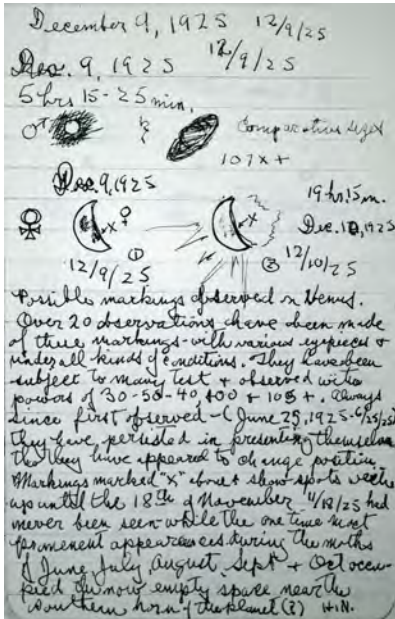 December 9, 1925 12/9/25
Dec. 9, 1925 12/9/25
5 hrs 15-25 min.
♂ ♄ Comparative size
107x +
Dec. 9, 1925 19 hr. 15 m.
☿ x ♀ x Dec. 10, 1925
① ③ 12/10/25
12/9/25
Possible markings observed on Venus.
Over 20 observations have been made
of these markings - with various eyepieces &
under all kinds of conditions. They have been
subject to many test & observed with
powers of 30-50-40, 100 + 105 +. Always
since first observed - (June 25, 1925 - 6/25/25)
they have persisted in presenting themselves
tho they have appeared to change position.
Markings marked "x" above & show spots
up until the 18th of November 11/18/25 had
never been seen while the one time most
promenent appearances during the moths
of June July, August, Sept & Oct occu-
pied the now empty space near the
southern horn of the planet (?) H.N.